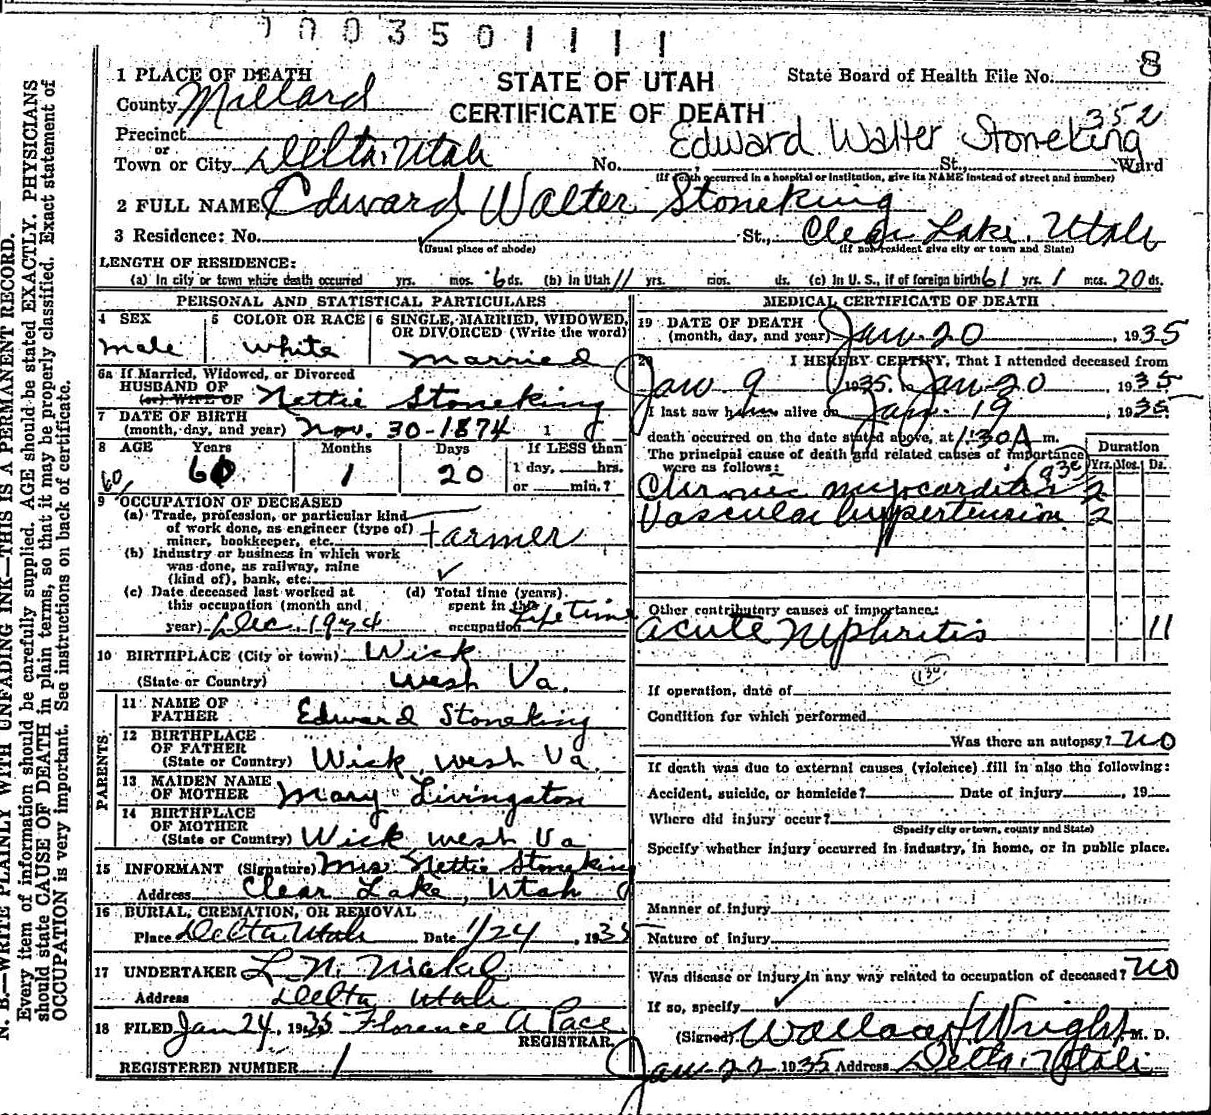 1 0 0 3 5 0 1 1 1 1
8
1 PLACE OF DEATH
STATE OF UTAH
State Board of Health File No.
County Millard
CERTIFICATE OF DEATH
352
Precinct
or
Edward Walter Stoneking
Town or City Delta, Utah No. St., Ward
(If death occurred in a hospital or institution, give its NAME instead of street and number)
2 FULL NAME Edward Walter Stoneking
3 Residence: No. St., Clear Lake, Utah
(Usual place of abode) (If non-resident give city or town and State)
LENGTH OF RESIDENCE:
(a) In city or town where death occurred yrs. mos. 6 ds. (b) in Utah 11 yrs. mos. ds. (c) In U. S., if of foreign birth 61 yrs. 1 mos. 20 ds.
PERSONAL AND STATISTICAL PARTICULARS
4 SEX
male
5 COLOR OR RACE
white
6 SINGLE, MARRIED, WIDOWED,
OR DIVORCED (Write the word)
married
6a If Married, Widowed, or Divorced
HUSBAND OF
(or) WIFE OF Nettie Stoneking
7 DATE OF BIRTH
(month, day, and year) Nov. 30-1874 1
8 AGE Years Months Days If LESS than
60 1 20 1 day, hrs.
60 or min.?
9 OCCUPATION OF DECEASED
(a) Trade, profession, or particular kind
of work done, as engineer (type of)
miner, bookkeeper, etc. farmer
(b) Industry or business in which work
was done, as railway, mine
(kind of), bank, etc.
(c) Date deceased last worked at
this occupation (month and
year) Dec. 1934
(d) Total time (years)
spent in this
occupation Life time
10 BIRTHPLACE (City or town) Wick
(State or Country) West Va.
PARENTS
11 NAME OF
FATHER Edward Stoneking
12 BIRTHPLACE
OF FATHER
(State or Country) Wick, West Va.
13 MAIDEN NAME
OF MOTHER Mary Livingston
14 BIRTHPLACE
OF MOTHER
(State or Country) Wick West Va
15 INFORMANT (Signature) Mrs Nettie Stoneking
Address Clear Lake, Utah
16 BURIAL, CREMATION, OR REMOVAL
Place Delta Utah Date 1/24, 1935
17 UNDERTAKER L. N. Nickle
Address Delta Utah
18 FILED Jan 24, 1935 Florence A Pace
REGISTRAR.
REGISTERED NUMBER 1
MEDICAL CERTIFICATE OF DEATH
19 DATE OF DEATH
(month, day, and year) Jan-20, 1935
20 I HEREBY CERTIFY, That I attended deceased from
Jan 9 1935, to Jan-20, 1935
I last saw him alive on Jan. 19, 1935
death occurred on the date stated above, at 1:30 A m.
The principal cause of death and related causes of importance
were as follows:
Duration
Yrs. Mos. Ds.
Chronic myocarditis 2
Vascular hypertension 2
Other contributory causes of importance:
acute nephritis 11
130
If operation, date of
Condition for which performed
Was there an autopsy? no
If death was due to external causes (violence) fill in also the following:
Accident, suicide, or homicide? Date of injury, 19
Where did injury occur?
(Specify city or town, county and State)
Specify whether injury occurred in industry, in home, or in public place.
Manner of injury
Nature of injury
Was disease or injury in any way related to occupation of deceased? no
If so, specify
(Signed) Wallace Wright M. D.
Jan-22 1935 Address Delta-Utah
N. B.—WRITE PLAINLY WITH UNFADING INK—THIS IS A PERMANENT RECORD.
Every item of information should be carefully supplied. AGE should be stated EXACTLY. PHYSICIANS
should state CAUSE OF DEATH in plain terms, so that it may be properly classified. Exact statement of
OCCUPATION is very important. See instructions on back of certificate.